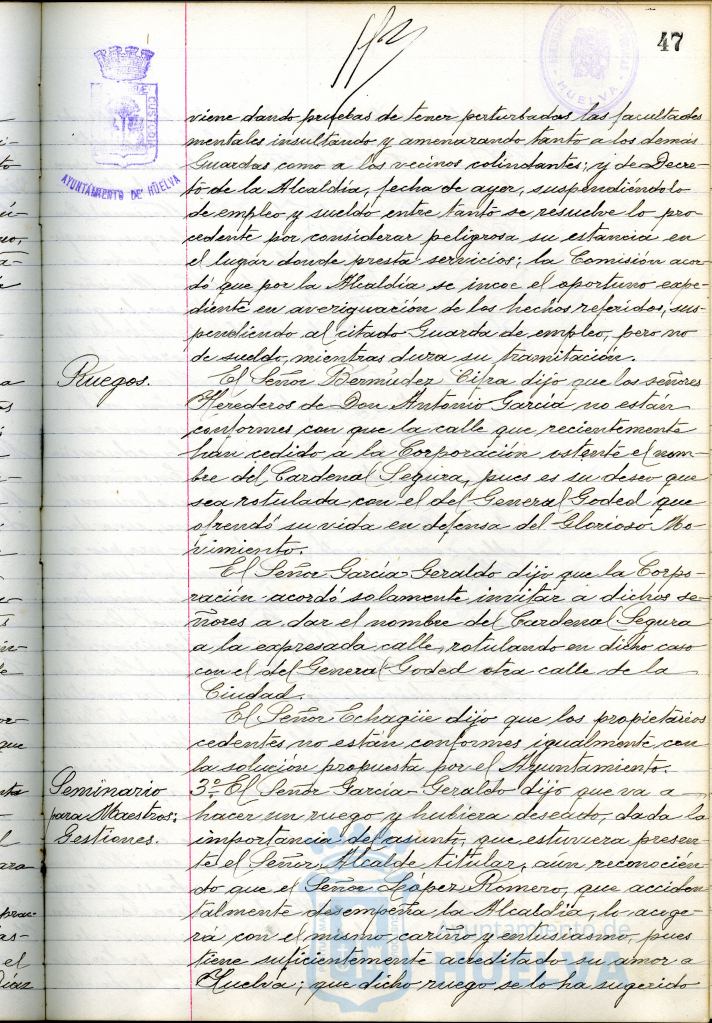 47
HUELVA
CUSTODIA
AYUNTAMIENTO DE HUELVA
viene dando pruebas de tener perturbadas las facultades
mentales insultando y amenazando tanto a los demás
Guardas como a los vecinos colindantes; y de Decre-
to de la Alcaldía, fecha de ayer, suspendiéndolo
de empleo y sueldo entre tanto se resuelve lo pro-
cedente por considerar peligrosa su estancia en
el lugar donde presta servicios; la Comisión acor-
dó que por la Alcaldía se incoe el oportuno expe-
diente en averiguación de los hechos referidos, sus-
pendiendo al citado Guarda de empleo, pero no
de sueldo, mientras dura su tramitación.
Ruegos.
El Señor Bermúdez Cifra dijo que los señores
Herederos de Don Antonio García no están
conformes con que la calle que recientemente
han cedido a la Corporación ostente el nom-
bre del Cardenal Segura, pues es su deseo que
sea rotulada con el del General Goded que
ofrendó su vida en defensa del Glorioso Mo-
vimiento.
El Señor García-Geraldo dijo que la Corpo-
ración acordó solamente invitar a dichos se-
ñores a dar el nombre del Cardenal Segura
a la expresada calle, rotulando en dicho caso
con el del General Goded otra calle de la
Ciudad.
El Señor Echagüe dijo que los propietarios
cedentes no están conformes igualmente con
la solución propuesta por el Ayuntamiento.
Seminario
para Maestros:
Gestiones.
3º El Señor García-Geraldo dijo que va a
hacer un ruego y hubiera deseado, dada la
importancia del asunto, que estuviera presen-
te el Señor Alcalde titular, aún reconocien-
do que el Señor López Romero, que acciden-
talmente desempeña la Alcaldía, lo acoge-
rá con el mismo cariño y entusiasmo, pues
tiene suficientemente acreditado su amor a
Huelva; que dicho ruego se lo ha sugerido
Ayuntamiento de
HUELVA